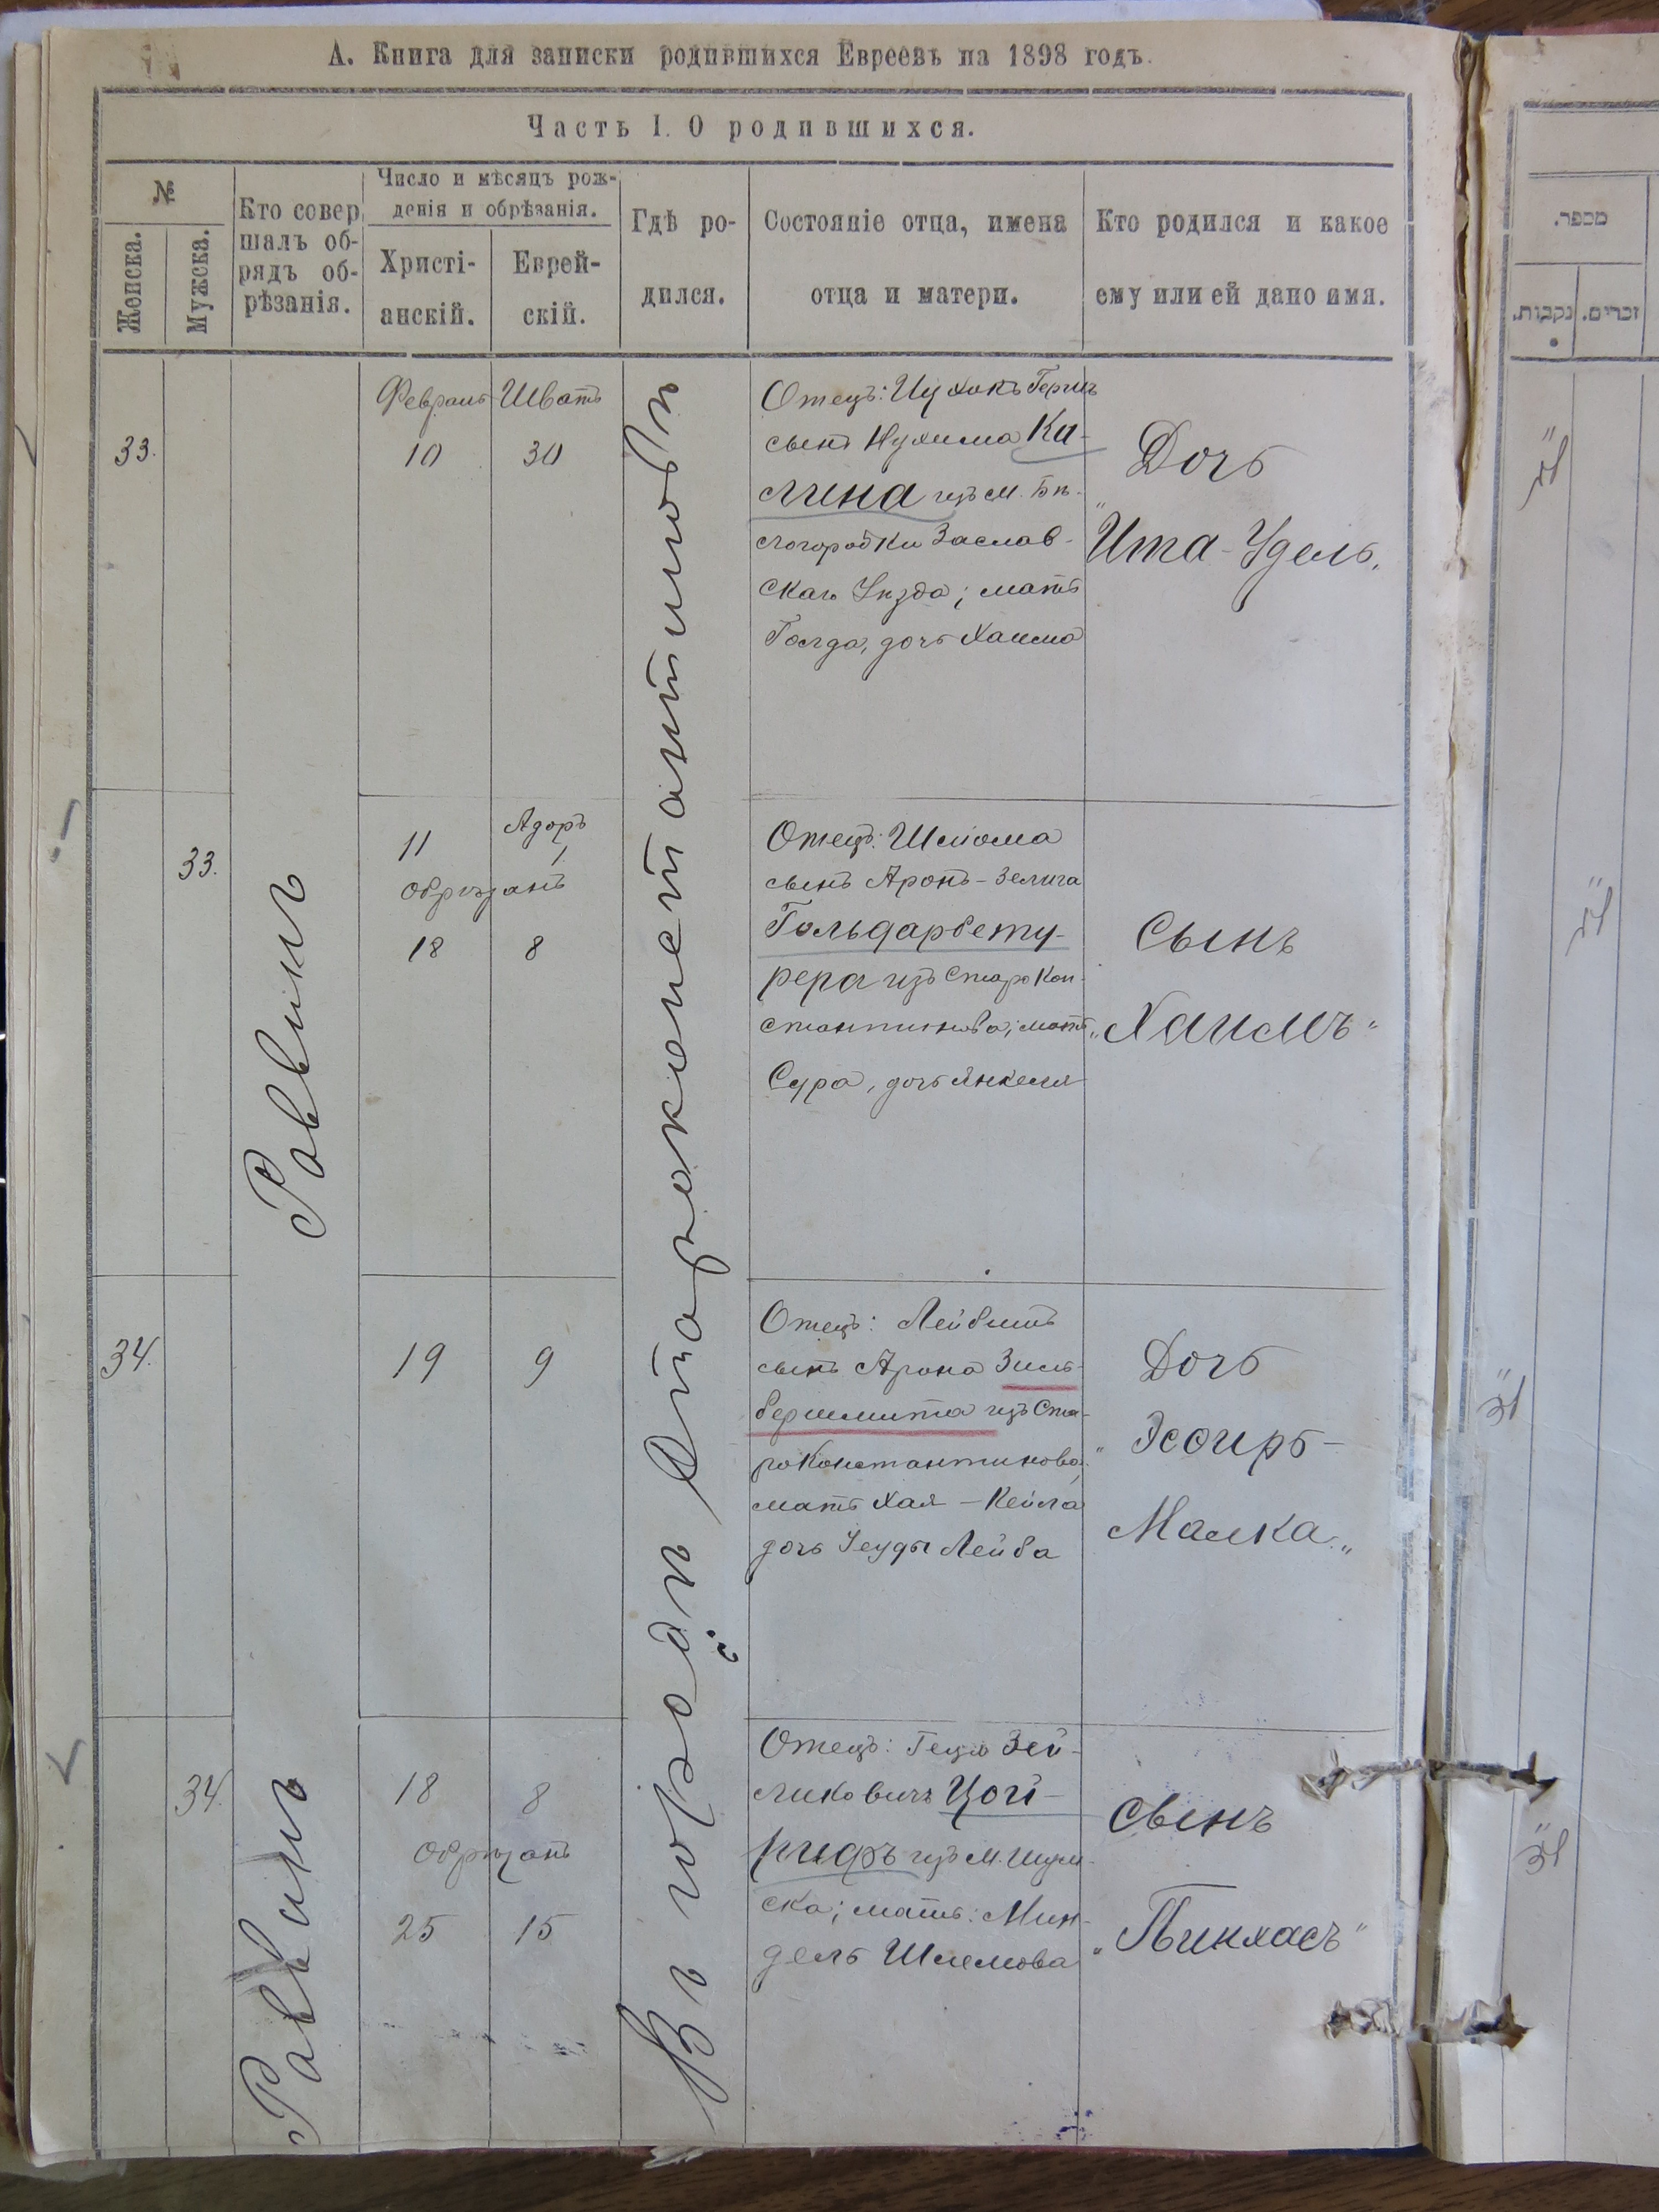 А. Книга для записки родившихся Евреевъ на 1898 годъ.
Часть I. О родившихся.
№
Женска.
Мужска.
Кто совер
шалъ об-
рядъ об-
рѣзанія.
Число и мѣсяцъ рож-
денія и обрѣзанія.
Христі-
анскій.
Еврей-
скій.
Гдѣ ро-
дился.
Состояніе отца, имена
отца и матери.
Кто родился и какое
ему или ей дано имя.
Въ городѣ Староконстантиновѣ
33.
Февраль
10
Шватъ
30
Отецъ: Ицхокъ Гершъ
сынъ Нухима Ка-
лина изъ м. Бѣ-
логородки Заслав-
скаго Уѣзда; мать
Голда, дочь Хаима
Дочь
"Ита-Удель.
33.
Раввинъ
11
Адоръ
1
обрѣзанъ
18
8
Отецъ: Шлома
сынъ Аронъ-Зелига
Гольдарбету-
рера изъ Старокон-
стантинова; мать
Сура, дочь Янкеля
Сынъ
"Хаимъ"
34.
19
9
Отецъ: Лейбишъ
сынъ Арона Зиль-
бершмита изъ Ста-
роконстантинова,
мать Хая-Кейла
дочь Іеуды Лейба
Дочь
"Эсѳирь-
Малка"
34.
Раввинъ
18
8
Обрѣзанъ
25
15
Отецъ: Гецл Зей-
ликовичъ Цой-
рифъ изъ м. Шум-
ска; мать: Мин-
дель Шлемова
Сынъ
"Пинхасъ"
מספר.
נקבות.
זכרים.
ל"ג
ל"ג
ל"ד
ל"ד